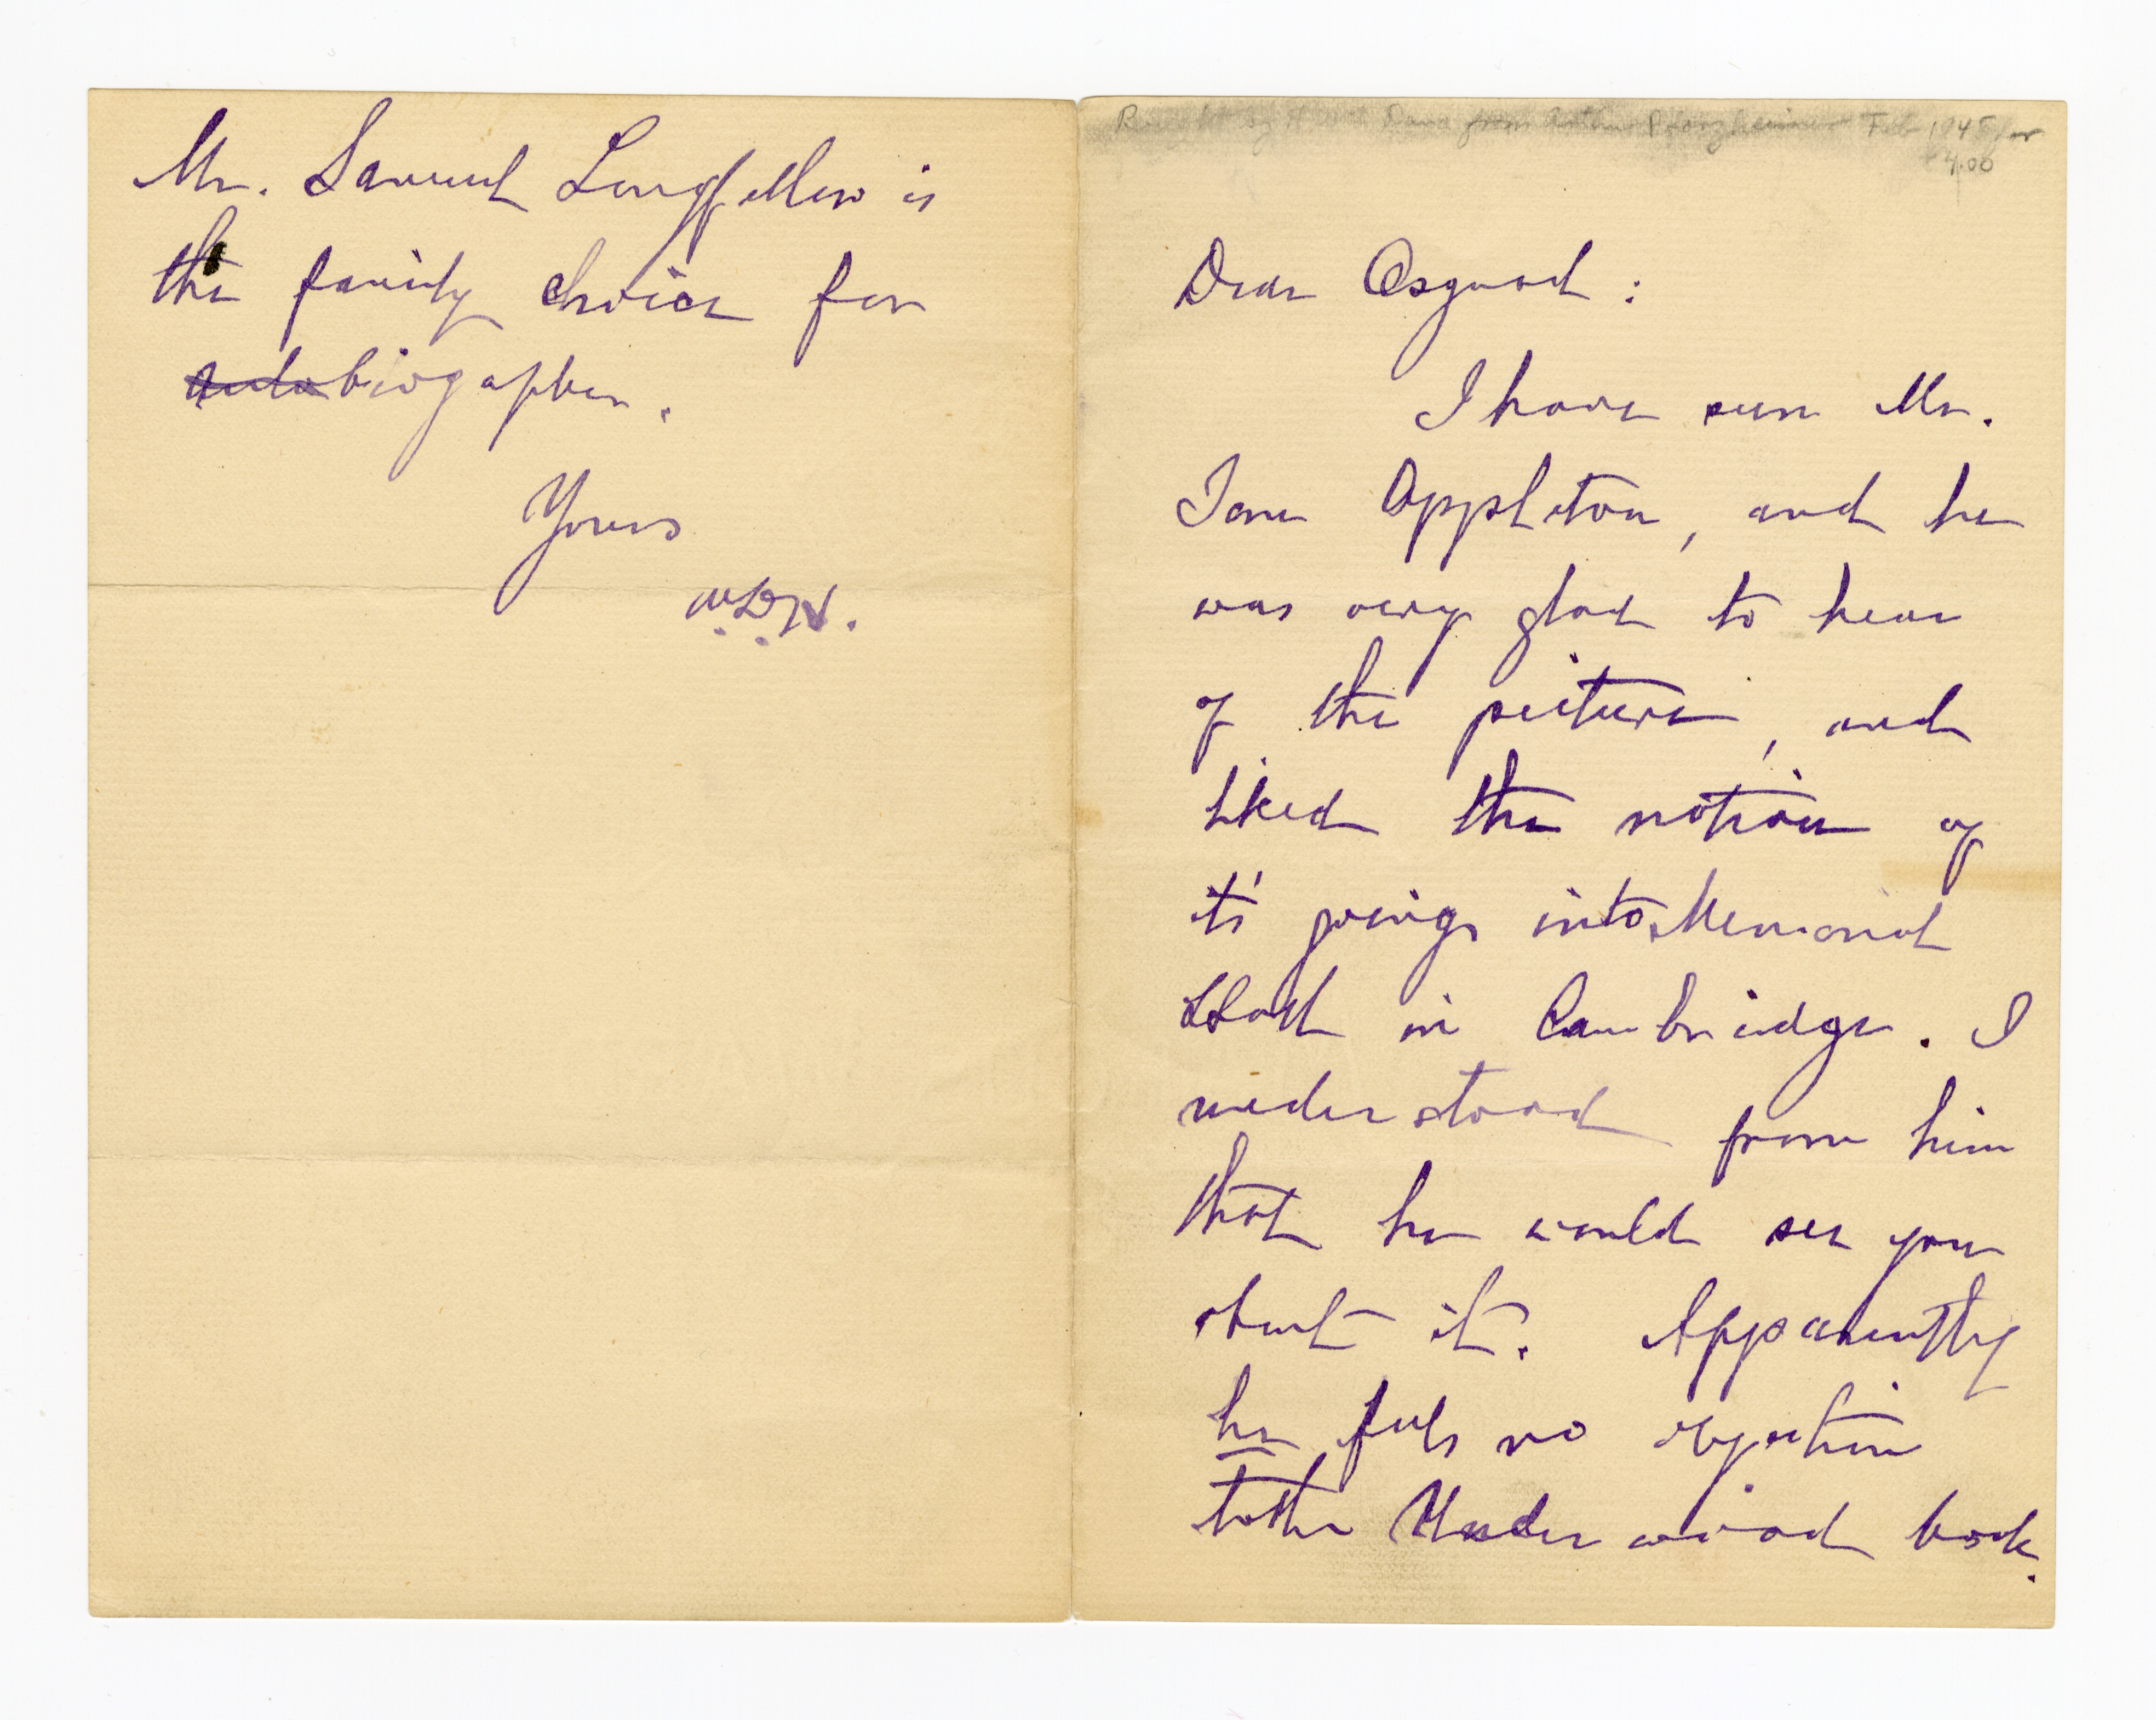 Bought by H W L Dana from Arthur Pforzheimer Feb 1945 for
4.00
Dear Osgood:
I have seen Mr.
Tom Appleton, and he
was very glad to hear
of the picture, and
liked the notion of
it's going into Memorial
Hall in Cambridge. I
understood from him
that he would see you
about it. Apparently
he feels no objection
to the Underwood book.
Mr. Samuel Longfellow is
the family choice for
autobiographer.
Yours
W.D.H.